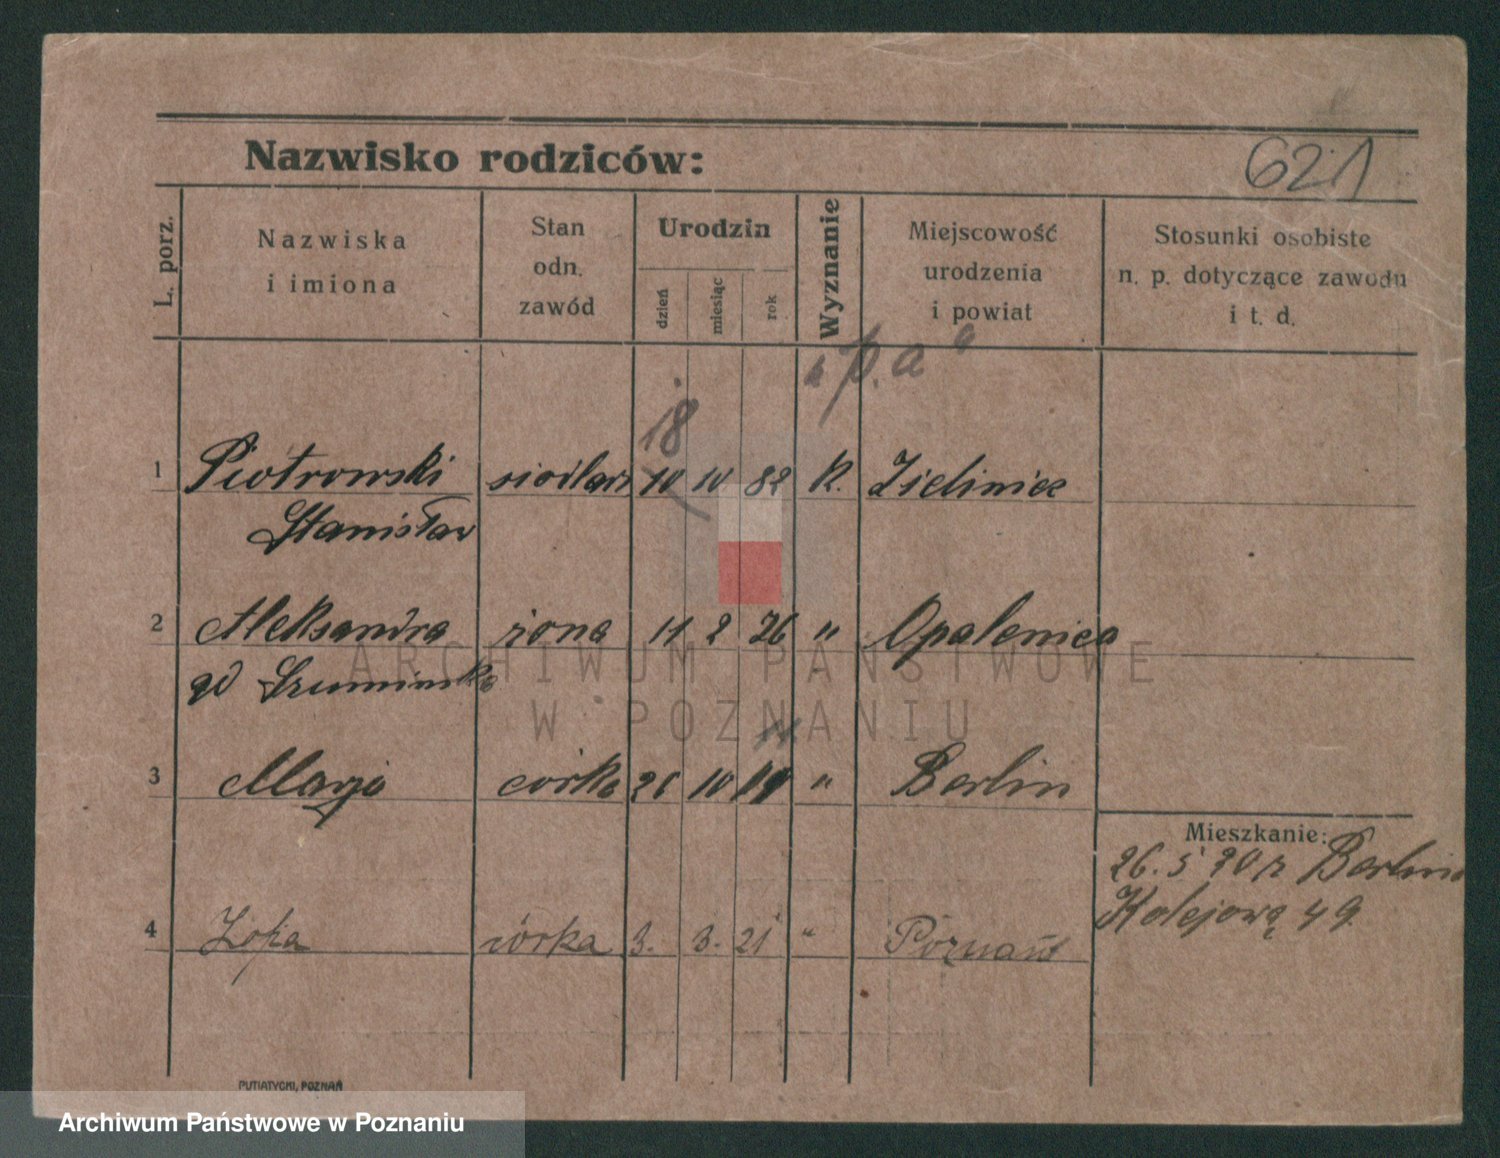 Nazwisko rodziców:
621
L. porz.
Nazwiska
i imiona
Stan
odn.
zawód
Urodzin
dzień
miesiąc
rok
Wyznanie
Miejscowość
urodzenia
i powiat
Stosunki osobiste
n. p. dotyczące zawodu
i t. d.
"p. a"
18
1 Piotrowski siodlarz 10 10 82 k. Zieliniec
Stanisław
2 Aleksandra żona 11 2 76 " Opalenica
ARCHIWUM PAŃSTWOWE
W POZNANIU
3 Marja córka 26 10 " Berlin
Mieszkanie:
26. 5 20 r Berlina
Kolejową 49.
4 Zofia córka 3. 3. 21 " Poznań
PUTIATYCKI, POZNAŃ
Archiwum Państwowe w Poznaniu